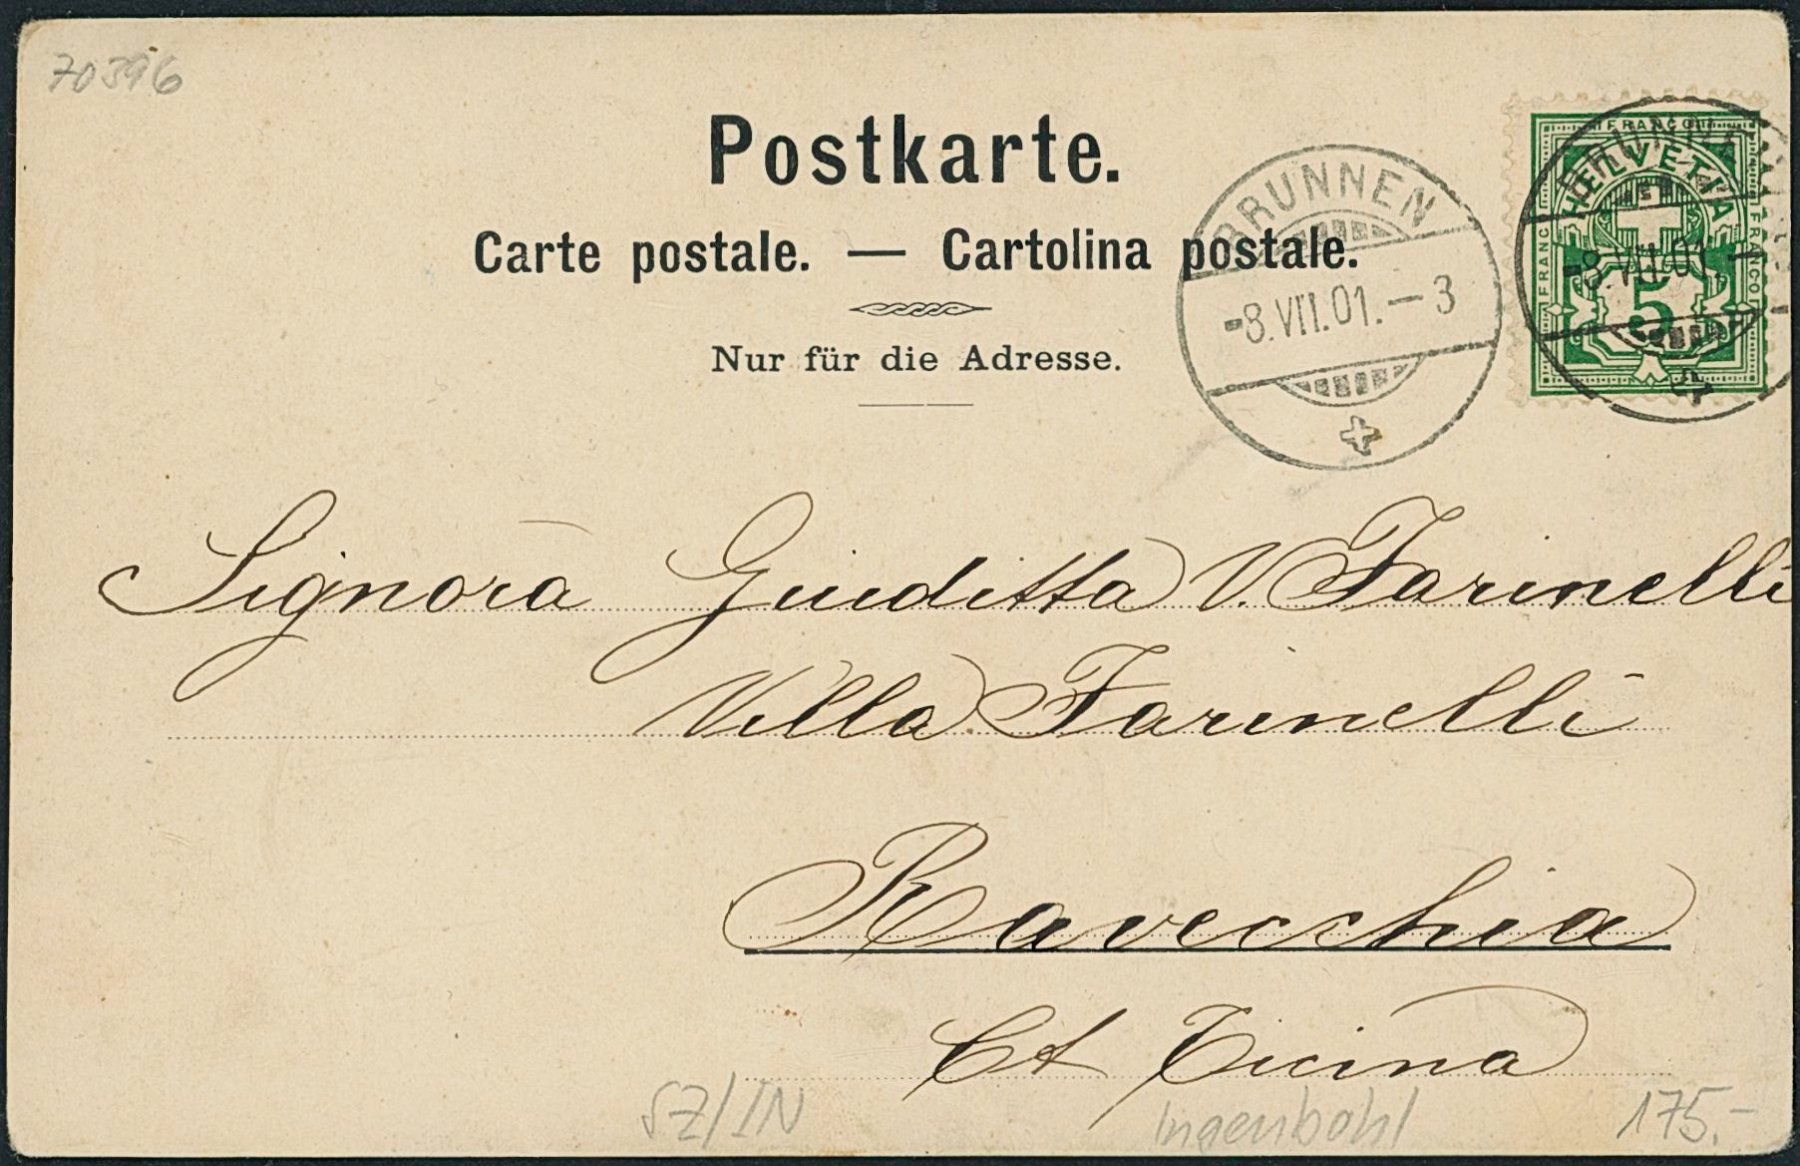 70396
Postkarte.
Carte postale. — Cartolina postale.
Nur für die Adresse.
BRUNNEN
-8.VII.01.-3
FRANCO
FRANCO
FRANCO
HELVETIA
5
BRUNNEN
-8.VII.01.-
Signora Giuditta V. Farinelli
Villa Farinelli
Ravecchia
Ct Ticina
SZ/IN
Ingenbohl
175.-